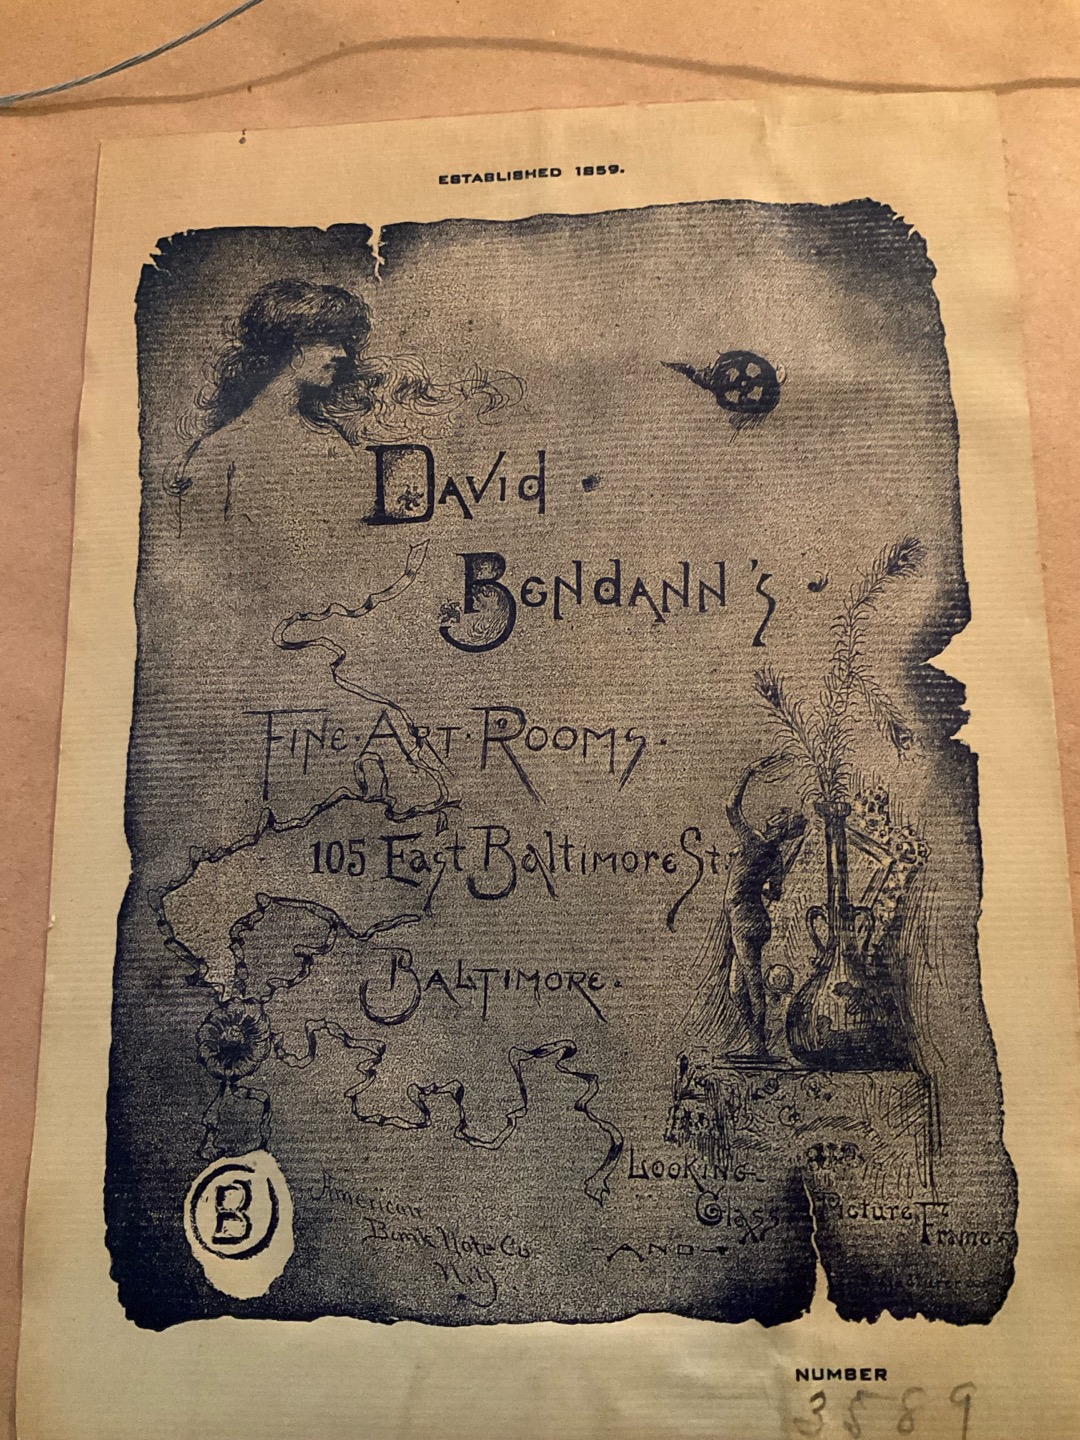 ESTABLISHED 1859.
DAVID
BENDANN'S
FINE·ART·ROOMS.
105 East Baltimore St.
BALTIMORE.
LOOKING
Glass Picture
AND Frame
B
American
Bank Note Co.
N.Y.
NUMBER
3589